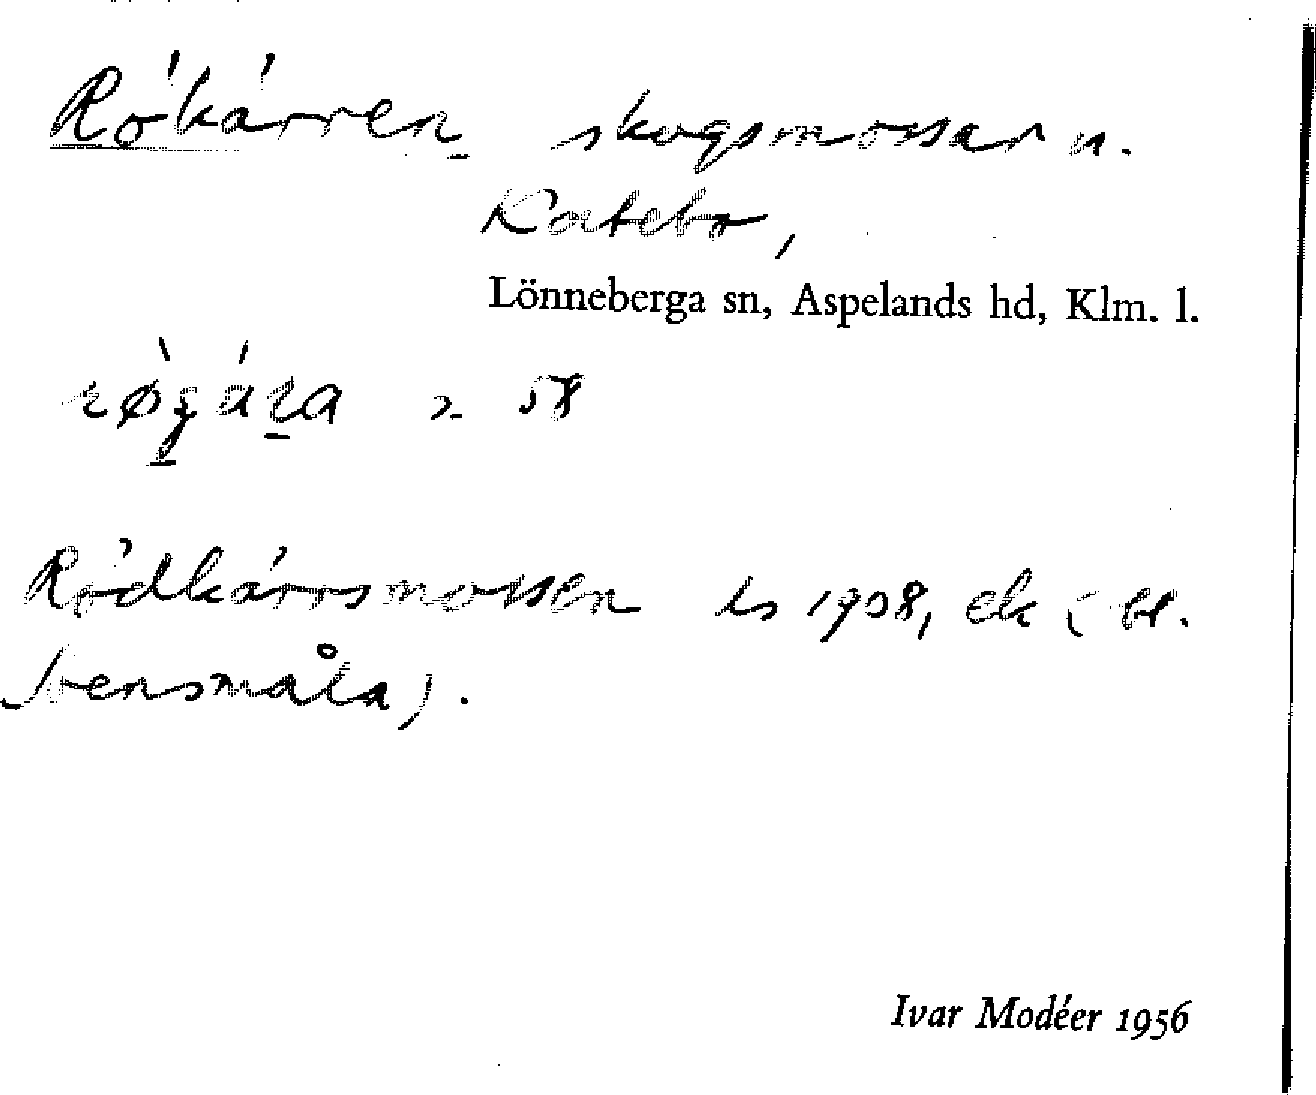 Rökärren skogsmossar n.
Katebo,
Lönneberga sn, Aspelands hd, Klm. l.
58
Rödkärrsmossen ls 1908, ek (bl.
Stensmåla).
Ivar Modéer 1956